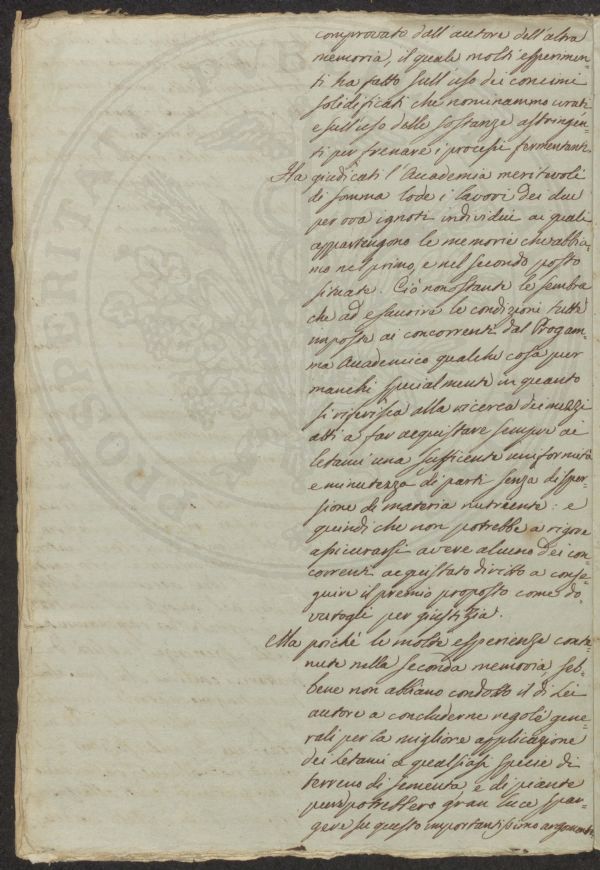 comprovato dall'autore dell'altra
memoria, il quale molti esperimen-
ti ha fatto sull'uso dei concimi
solidificati che nominammo urati
e sull'uso delle sostanze astringen-
ti per frenare i processi fermentanti.
Ha giudicati l'Accademia meritevoli
di somma lode i lavori dei due
per ora ignoti individui ai quali
appartengono le memorie che abbia-
mo nel primo, e nel secondo posto
situate. Ciò nonostante le sembra
che ad esaurire le condizioni tutte
imposte ai concorrenti dal Progam-
ma Accademico qualche cosa pur
manchi specialmente in quanto
si riferisca alla ricerca dei mezzi
atti a far acquistare sempre ai
letami una sufficente uniformità
e minutezza di parti senza disper-
sione di materia nutriente: e
quindi che non potrebbe a rigore
assicurarsi avere alcuno dei con-
correnti acquistato diritto a conse-
guire il premio proposto come do-
vutogli per giustizia.
Ma poichè le molte esperienze conte-
nute nella seconda memoria, seb-
bene non abbiano condotto il di Lei
autore a concluderne regole gene-
rali per la migliore applicazione
dei Letami a qualsiasi specie di
terreno di sementa, e di piante
pure potrebbero gran luce spar-
gere su questo importantissimo argomento
PROSPERITATI PUB